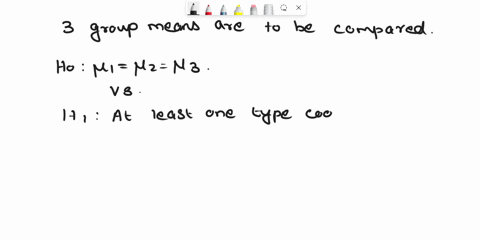 3 group means are to be compared.
H0 : μ1 = μ2 = μ3 .
vs .
H1 : At least one type coo